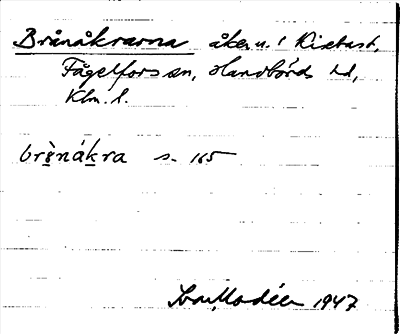 Brånåkrarna åker u.
Fågelfors sn, Handbörds hd,
Klm. l.
brå̀nákra s. 165
Ivar Modéer 1947